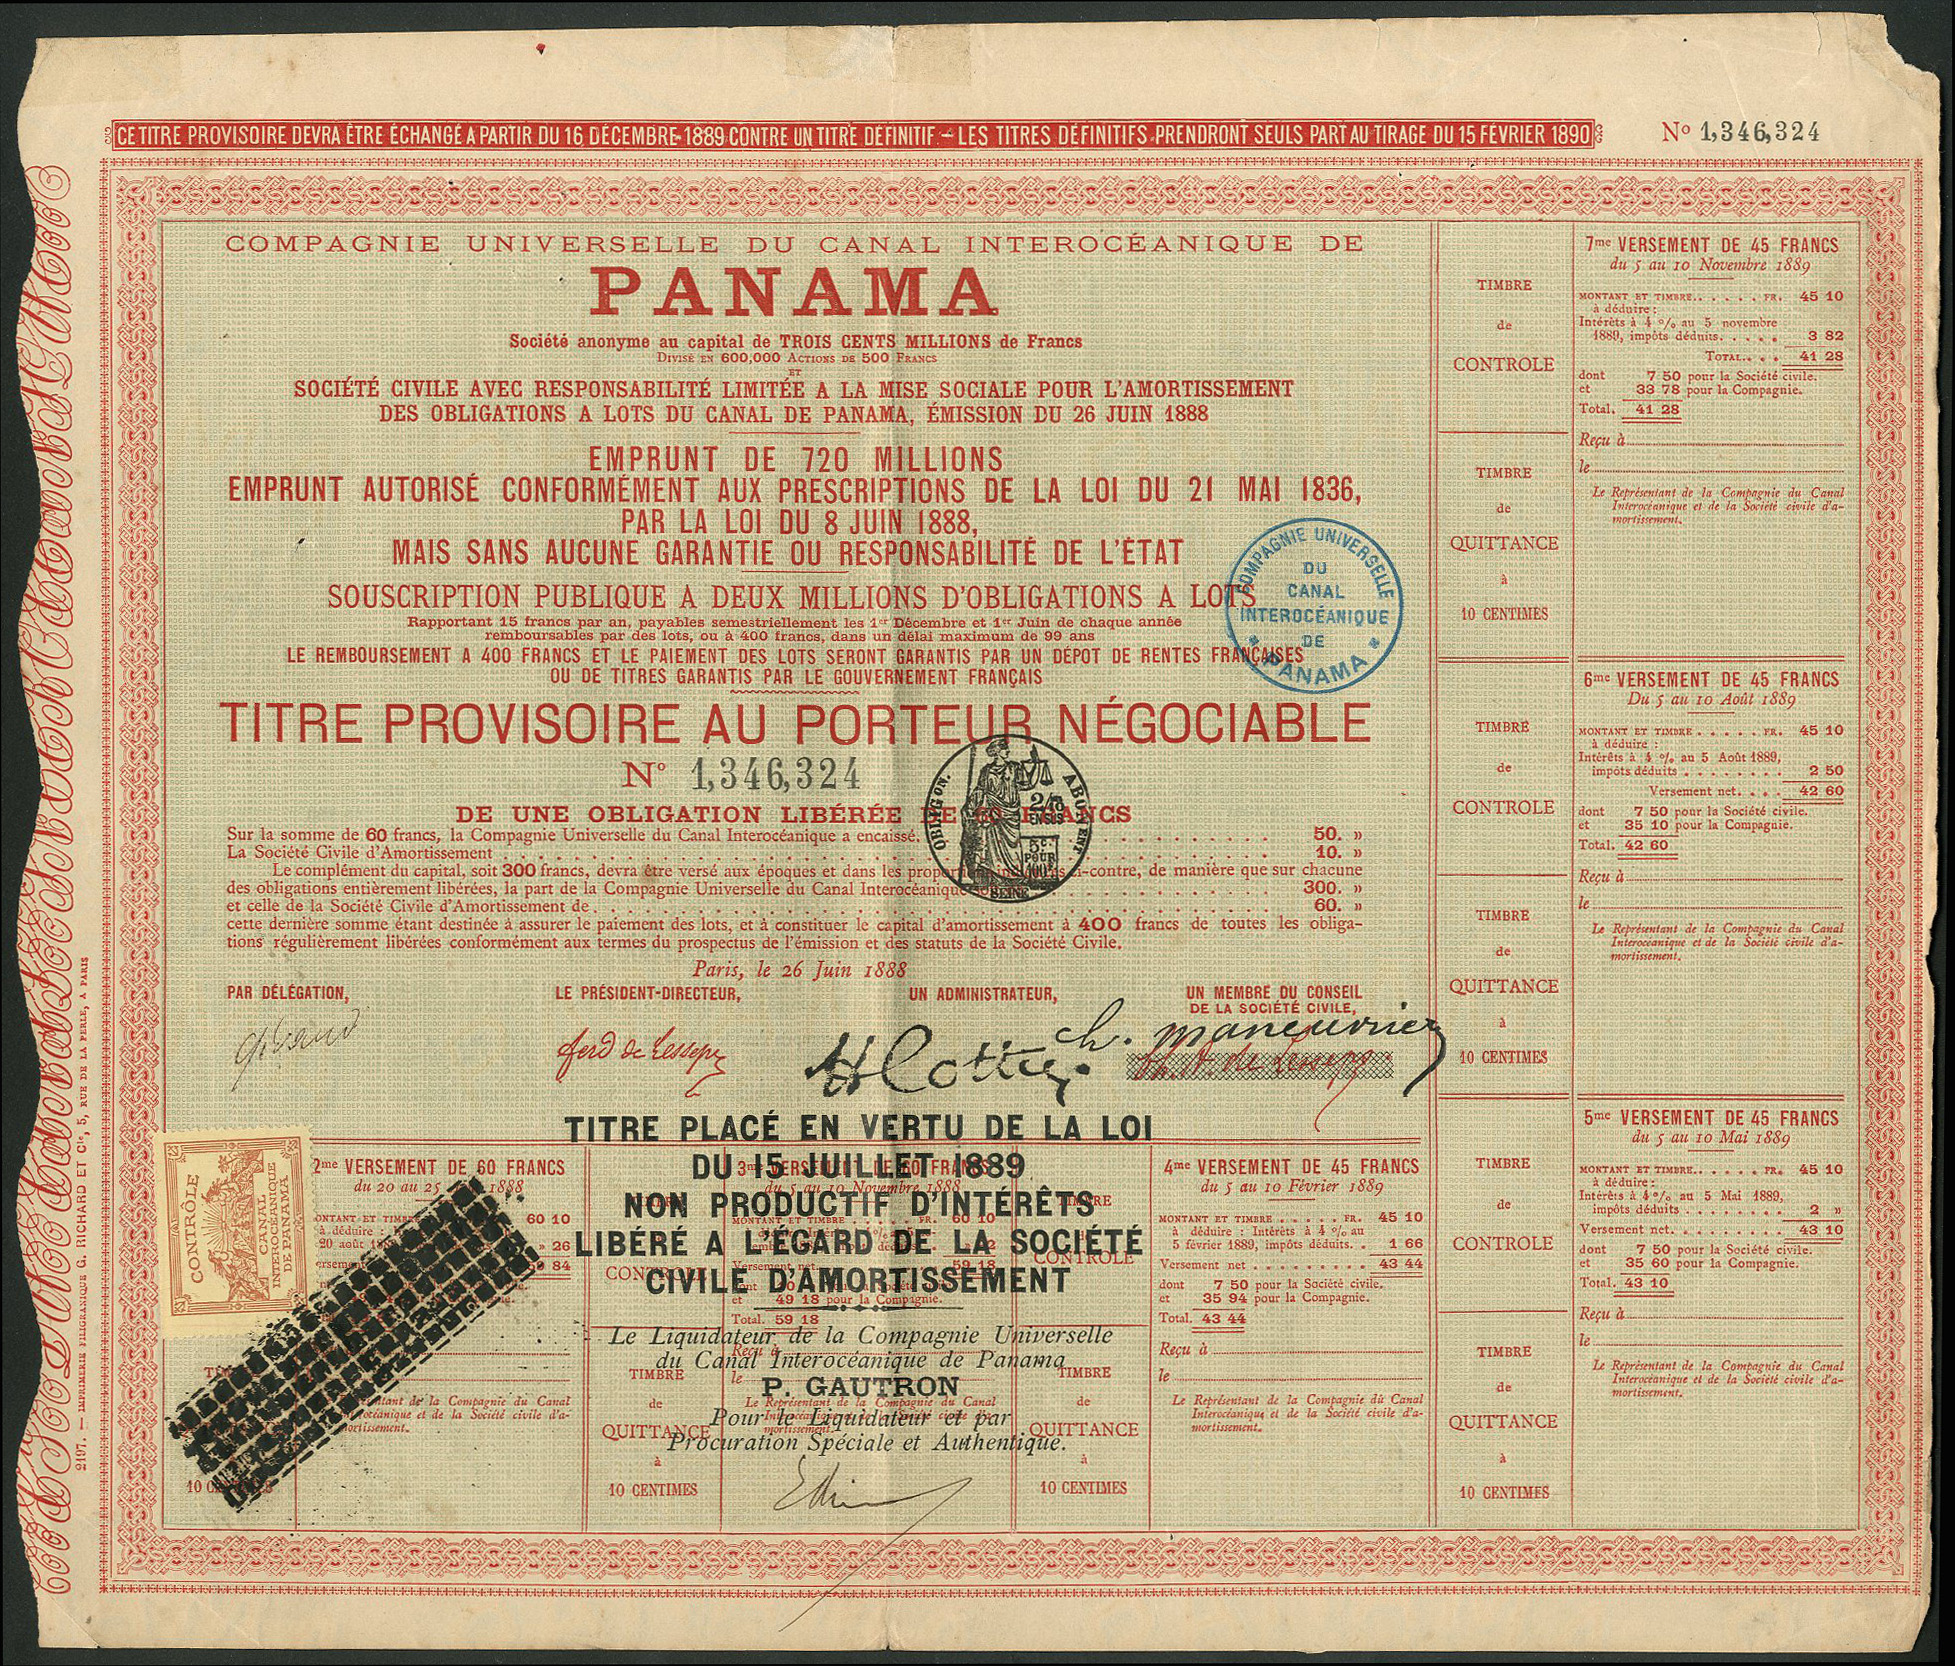 CE TITRE PROVISOIRE DEVRA ÊTRE ÉCHANGÉ A PARTIR DU 16 DÉCEMBRE 1889 CONTRE UN TITRE DÉFINITIF - LES TITRES DÉFINITIFS PRENDRONT SEULS PART AU TIRAGE DU 15 FÉVRIER 1890
Nº 1,346,324
COMPAGNIE UNIVERSELLE DU CANAL INTEROCÉANIQUE DE
PANAMA
Société anonyme au capital de TROIS CENTS MILLIONS de Francs
DIVISÉ EN 600,000 ACTIONS DE 500 FRANCS
ET
SOCIÉTÉ CIVILE AVEC RESPONSABILITÉ LIMITÉE A LA MISE SOCIALE POUR L'AMORTISSEMENT
DES OBLIGATIONS A LOTS DU CANAL DE PANAMA, ÉMISSION DU 26 JUIN 1888
EMPRUNT DE 720 MILLIONS
EMPRUNT AUTORISÉ CONFORMÉMENT AUX PRESCRIPTIONS DE LA LOI DU 21 MAI 1836,
PAR LA LOI DU 8 JUIN 1888,
MAIS SANS AUCUNE GARANTIE OU RESPONSABILITÉ DE L'ÉTAT
SOUSCRIPTION PUBLIQUE A DEUX MILLIONS D'OBLIGATIONS A LOTS
Rapportant 15 francs par an, payables semestriellement les 1er Décembre et 1er Juin de chaque année
remboursables par des lots, ou à 400 francs, dans un délai maximum de 99 ans
LE REMBOURSEMENT A 400 FRANCS ET LE PAIEMENT DES LOTS SERONT GARANTIS PAR UN DÉPOT DE RENTES FRANÇAISES
OU DE TITRES GARANTIS PAR LE GOUVERNEMENT FRANÇAIS
COMPAGNIE UNIVERSELLE
DU
CANAL
INTEROCÉANIQUE
DE
* PANAMA *
TITRE PROVISOIRE AU PORTEUR NÉGOCIABLE
Nº 1,346,324
DE UNE OBLIGATION LIBÉRÉE DE 60 FRANCS
OBLIGON. ABONEMT
5c.
POUR
100f
SEINE
Sur la somme de 60 francs, la Compagnie Universelle du Canal Interocéanique a encaissé. 50. »
La Société Civile d'Amortissement 10. »
Le complément du capital, soit 300 francs, devra être versé aux époques et dans les proportions ci-contre, de manière que sur chacune
des obligations entièrement libérées, la part de la Compagnie Universelle du Canal Interocéanique 300. »
et celle de la Société Civile d'Amortissement de. 60. »
cette dernière somme étant destinée à assurer le paiement des lots, et à constituer le capital d'amortissement à 400 francs de toutes les obliga-
tions régulièrement libérées conformément aux termes du prospectus de l'émission et des statuts de la Société Civile.
Paris, le 26 Juin 1888
PAR DÉLÉGATION,
LE PRÉSIDENT-DIRECTEUR,
UN ADMINISTRATEUR,
UN MEMBRE DU CONSEIL
DE LA SOCIÉTÉ CIVILE,
ferd de Lesseps
H Cottu
Ch. de Lesseps
TITRE PLACÉ EN VERTU DE LA LOI
DU 15 JUILLET 1889
NON PRODUCTIF D'INTÉRÊTS
LIBÉRÉ A L'ÉGARD DE LA SOCIÉTÉ
CIVILE D'AMORTISSEMENT
Le Liquidateur de la Compagnie Universelle
du Canal Interocéanique de Panama
P. GAUTRON
Pour le Liquidateur et par
Procuration Spéciale et Authentique.
CONTRÔLE
CANAL
INTEROCÉANIQUE
DE PANAMA
2me VERSEMENT DE 60 FRANCS
du 20 au 25 1888
60 10
» 26
59 84
10 CENTIMES
TIMBRE
CONTROLE
TIMBRE
de
QUITTANCE
à
10 CENTIMES
3me VERSEMENT DE 60 FRANCS
du 5 au 10 Novembre 1888
MONTANT ET TIMBRE FR. 60 10
Versement net 59 18
et 49 18 pour la Compagnie.
Total. 59 18
Reçu à
le
Le Représentant de la Compagnie du Canal
TIMBRE
CONTROLE
TIMBRE
de
QUITTANCE
à
10 CENTIMES
4me VERSEMENT DE 45 FRANCS
du 5 au 10 Février 1889
MONTANT ET TIMBRE FR. 45 10
à déduire : Intérêts à 4 % au
5 février 1889, impôts déduits. 1 66
Versement net 43 44
dont 7 50 pour la Société civile.
et 35 94 pour la Compagnie.
Total. 43 44
Reçu à
le
Le Représentant de la Compagnie du Canal
Interocéanique et de la Société civile d'a-
mortissement.
TIMBRE
de
CONTROLE
TIMBRE
de
QUITTANCE
à
10 CENTIMES
7me VERSEMENT DE 45 FRANCS
du 5 au 10 Novembre 1889
MONTANT ET TIMBRE. FR. 45 10
à déduire :
Intérêts à 4 % au 5 novembre
1889, impôts déduits. 3 82
TOTAL. 41 28
dont 7 50 pour la Société civile.
et 33 78 pour la Compagnie.
Total. 41 28
Reçu à
le
Le Représentant de la Compagnie du Canal
Interocéanique et de la Société civile d'a-
mortissement.
TIMBRE
de
CONTROLE
TIMBRE
de
QUITTANCE
à
10 CENTIMES
6me VERSEMENT DE 45 FRANCS
Du 5 au 10 Août 1889
MONTANT ET TIMBRE FR. 45 10
à déduire :
Intérêts à 4 % au 5 Août 1889,
impôts déduits 2 50
Versement net. 42 60
dont 7 50 pour la Société civile.
et 35 10 pour la Compagnie.
Total. 42 60
Reçu à
le
Le Représentant de la Compagnie du Canal
Interocéanique et de la Société civile d'a-
mortissement.
TIMBRE
de
CONTROLE
TIMBRE
de
QUITTANCE
à
10 CENTIMES
5me VERSEMENT DE 45 FRANCS
du 5 au 10 Mai 1889
MONTANT ET TIMBRE. FR. 45 10
à déduire :
Intérêts à 4 % au 5 Mai 1889,
impôts déduits 2 »
Versement net. 43 10
dont 7 50 pour la Société civile.
et 35 60 pour la Compagnie.
Total. 43 10
Reçu à
le
Le Représentant de la Compagnie du Canal
Interocéanique et de la Société civile d'a-
mortissement.
2197. — IMPRIMERIE FILIGRANIQUE G. RICHARD ET Cie, 5, RUE DE LA PERLE, A PARIS